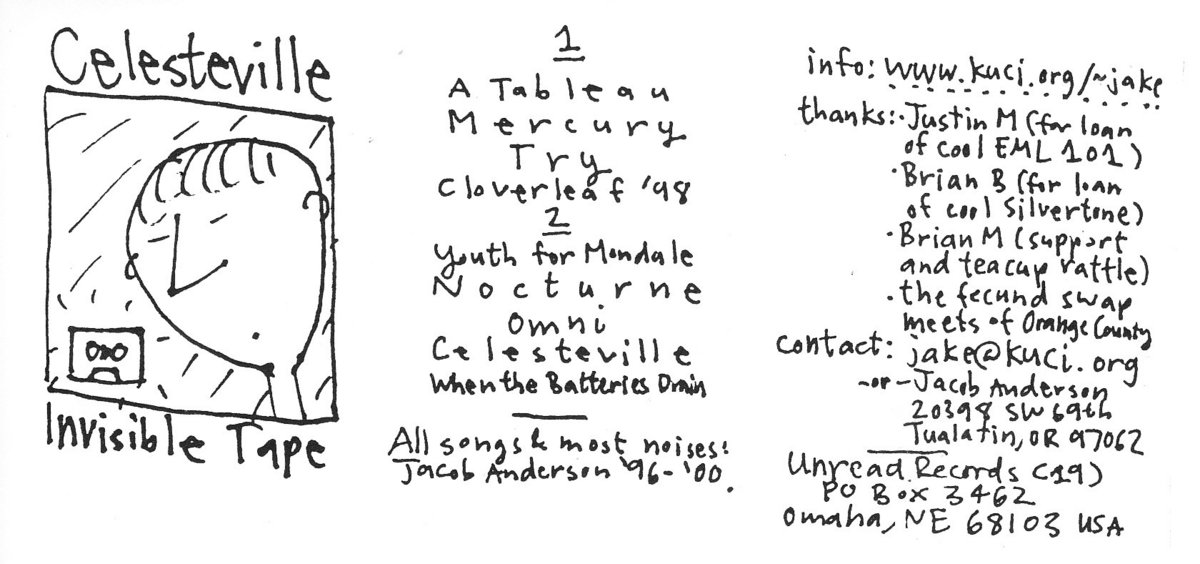 Celesteville
Invisible Tape
1
A Tableau
Mercury
Try
Cloverleaf '98
2
Youth for Mondale
Nocturne
Omni
Celesteville
When the Batteries Drain
All songs & most noises:
Jacob Anderson '96-'00.
info: www.kuci.org/~jake
thanks: · Justin M (for loan
of cool EML 101)
· Brian B (for loan
of cool Silvertone)
· Brian M (support
and teacup rattle)
· the fecund swap
meets of Orange County
contact: jake@kuci.org
-or- Jacob Anderson
20398 SW 69th
Tualatin, OR 97062
Unread Records (19)
PO Box 3462
Omaha, NE 68103 USA